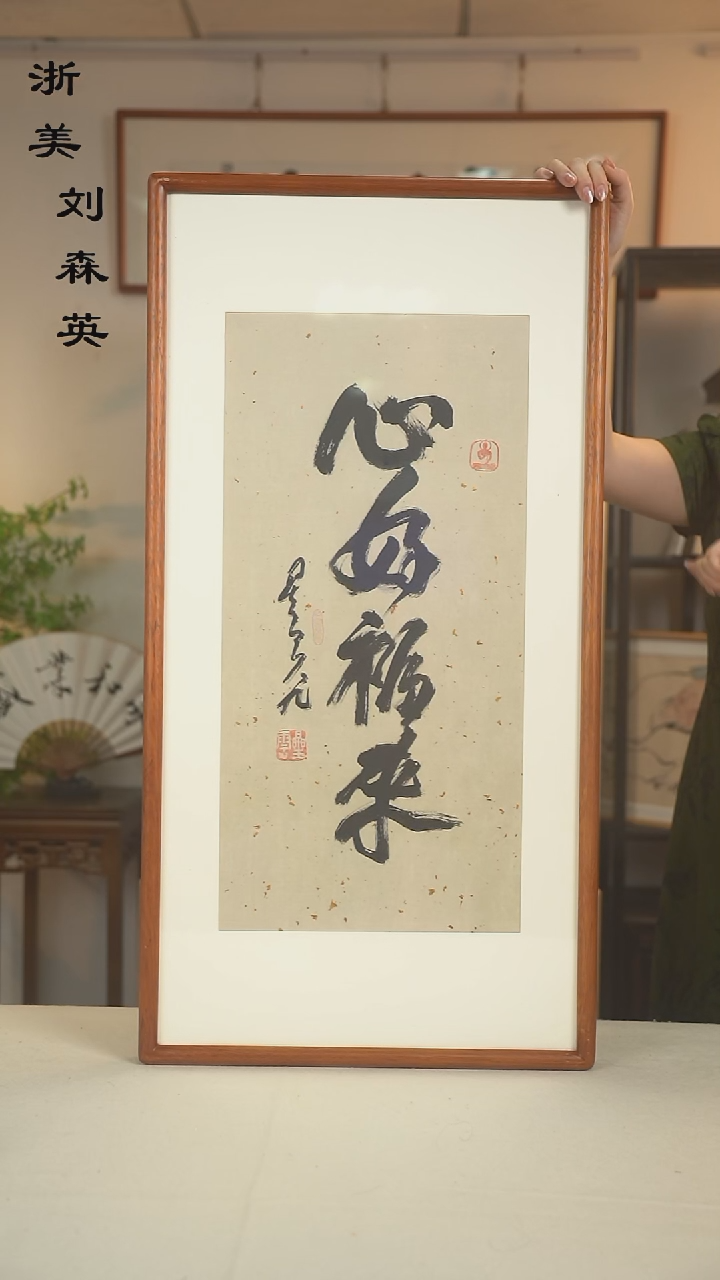 浙美
刘森英
心好福来